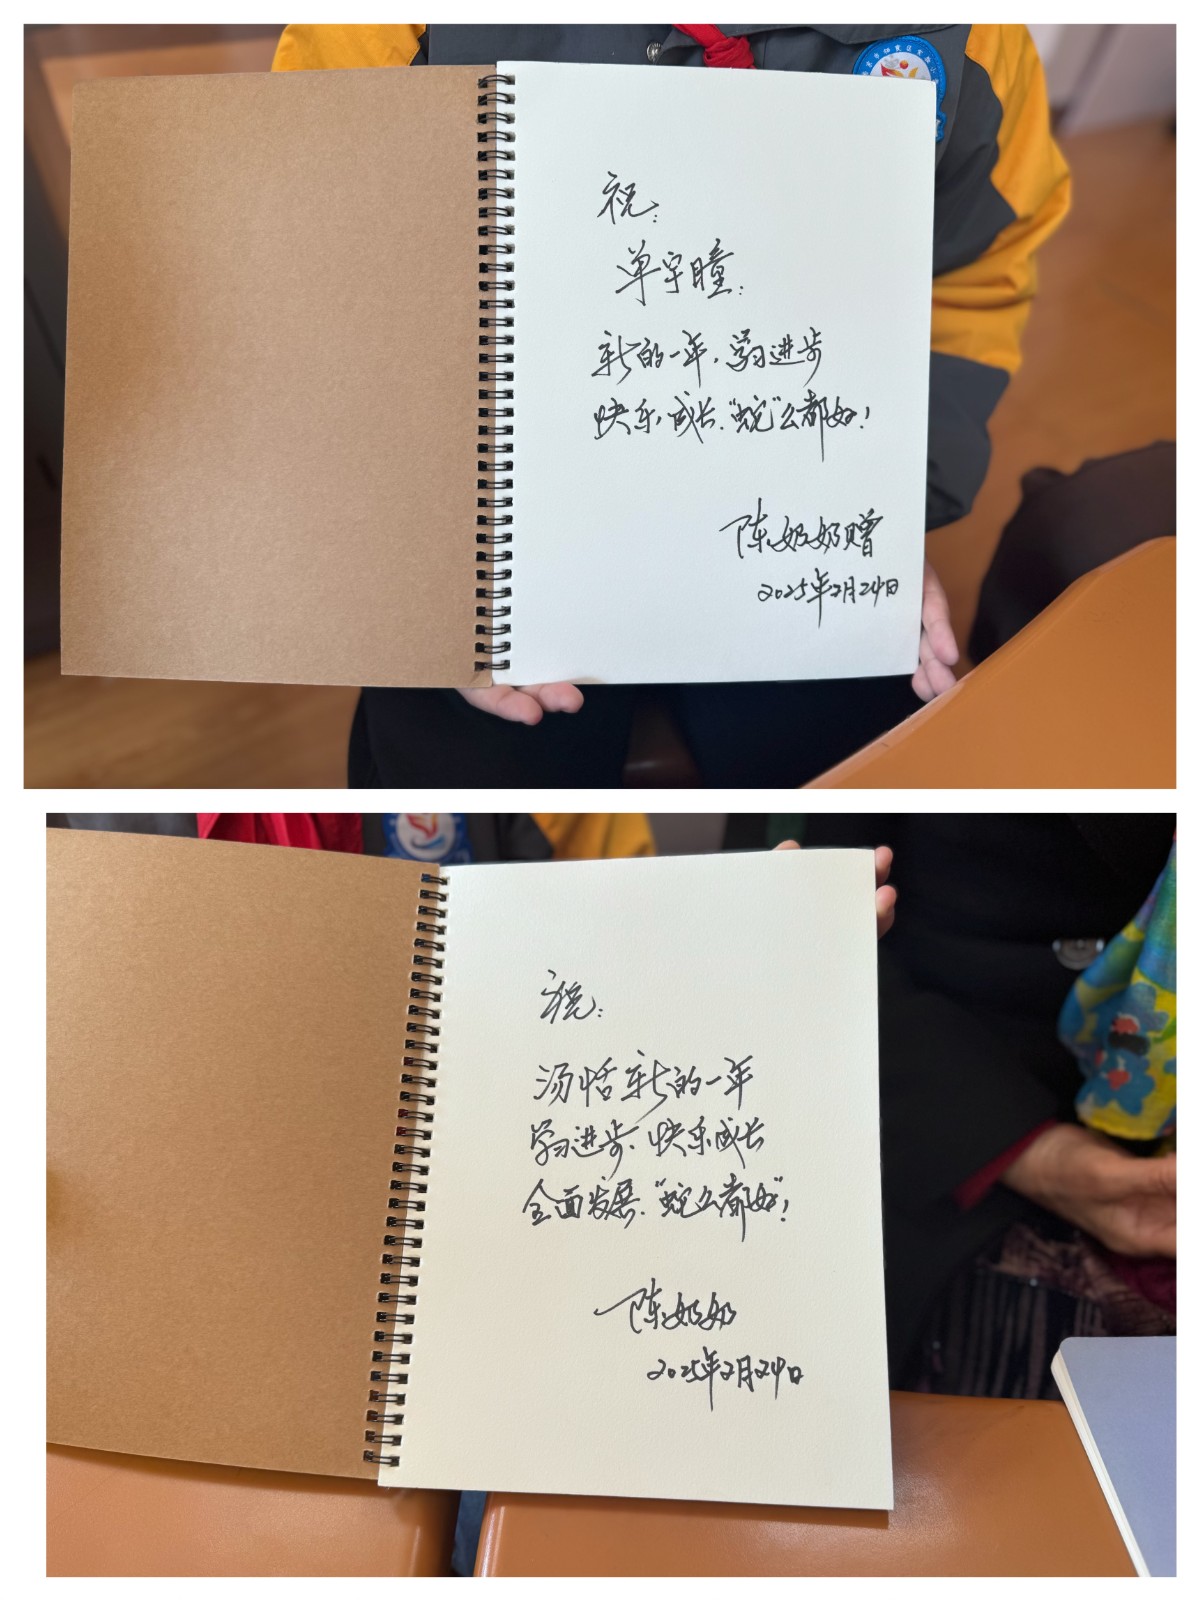 祝:
单宇瞳:
新的一年,学习进步
快乐成长,"蛇"么都好!
陈奶奶赠
2025年2月24日
祝:
汤恬新的一年
学习进步、快乐成长
全面发展、"蛇么都好"!
陈奶奶
2025年2月24日